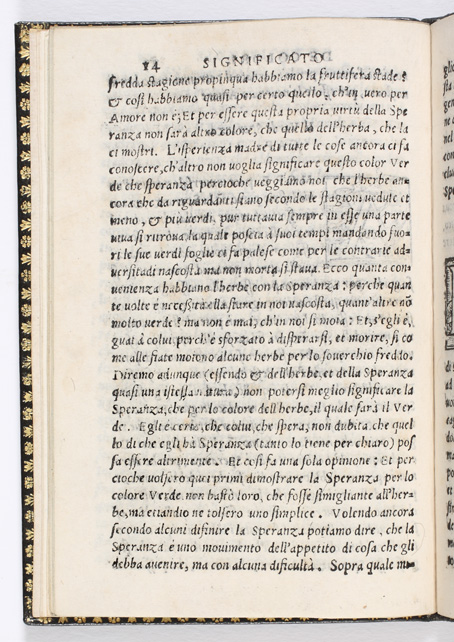 14 SIGNIFICATO
fredda stagione propinqua habbiamo la fruttifera stade :
& cosi habbiamo quasi per certo quello, ch'in vero per
Amore non è; Et per essere questa propria virtù della Spe
ranza non sarà altro colore, che quello dell'herba, che la
ci mostri. L'isperienza madre di tutte le cose ancora ci fa
conoscere, ch'altro non voglia significare questo color Ver
de che speranza percioche veggiamo noi che l'herbe an=
cora che da riguardanti siano secondo le stagioni vedute et
meno, & più verdi, pur tuttavia sempre in esse una parte
viva si ritrova la quale poscia à suoi tempi mandando fuo=
ri le sue verdi foglie ci fa palese come per le contrarie ad=
versitadi nascosta ma non morta si stava. Ecco quanta con=
venienza habbiano l'herbe con la Speranza : perche quan
te volte è necessità ella stare in noi nascosta, quant'altre nō
molto verde? ma non è mai, ch'in noi si moia : Et, s'egli è,
guai à colui, perch'è sforzato à disperarsi, et morire, si co
me alle fiate moiono alcune herbe per lo soverchio freddo.
Diremo adunque (essendo & dell'herbe, et della Speranza
quasi una istessa natura) non potersi meglio significare la
Speranza, che per lo colore dell'herbe, il quale sarà il Ver
de. Egli è certo, che colui, che spera, non dubita che quel
lo di che egli hà Speranza (tanto lo tiene per chiaro) pos
sa essere altrimente. Et cosi fa una sola opinione : Et per
cioche volsero quei primi dimostrare la Speranza per lo
colore Verde non bastò loro, che fosse simigliante all'her=
be, ma etiandio ne tolsero uno simplice. Volendo ancora
secondo alcuni difinire la Speranza potiamo dire, che la
Speranza è uno movimento dell'appetito di cosa che gli
debba avenire, ma con alcuna dificultà. Sopra quale mo=